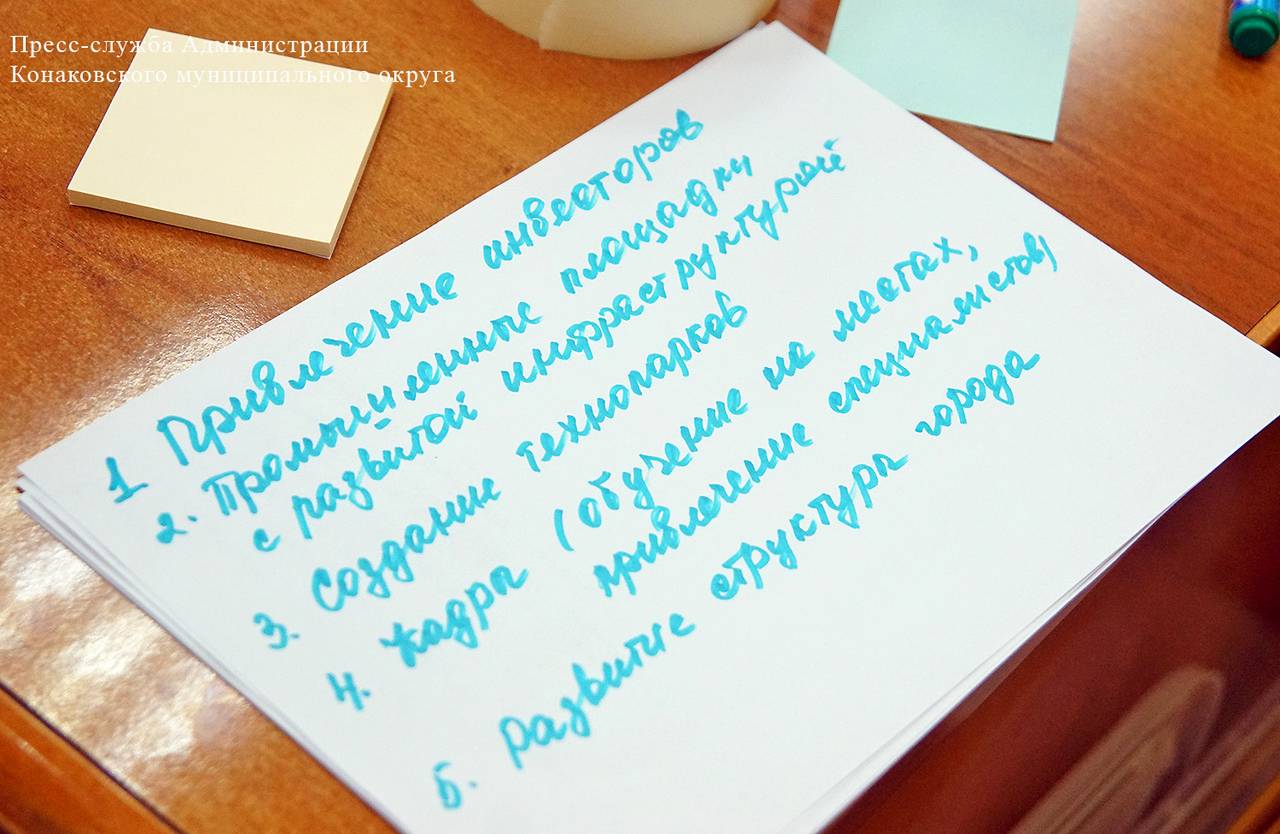 Пресс-служба Администрации
Конаковского муниципального округа
1 Привлечение инвесторов
2. Промышленные площадки
с развитой инфраструктурой
3. Создание технопарков
4. Кадры (обучение на местах,
привлечение специалистов)
5. Развитие структуры города